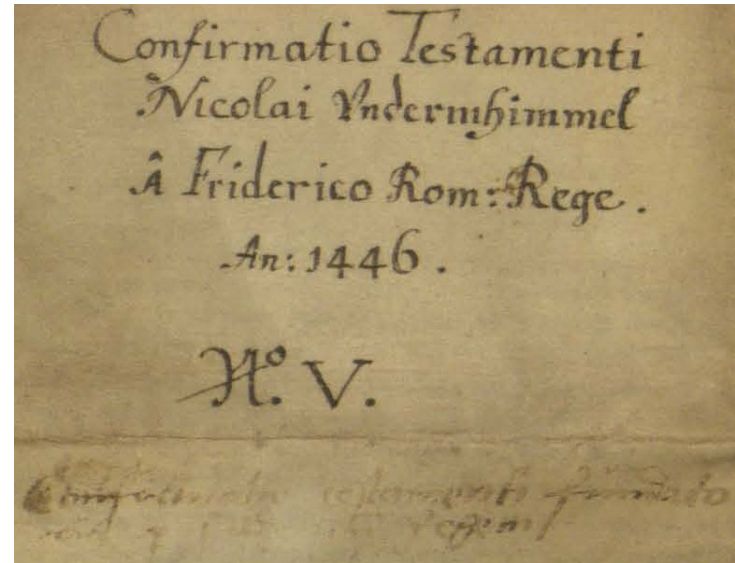 Confirmatio Testamenti
Nicolai Vndermhimmel
Â Friderico Rom: Rege.
An: 1446.
Nº. V.
testamenti